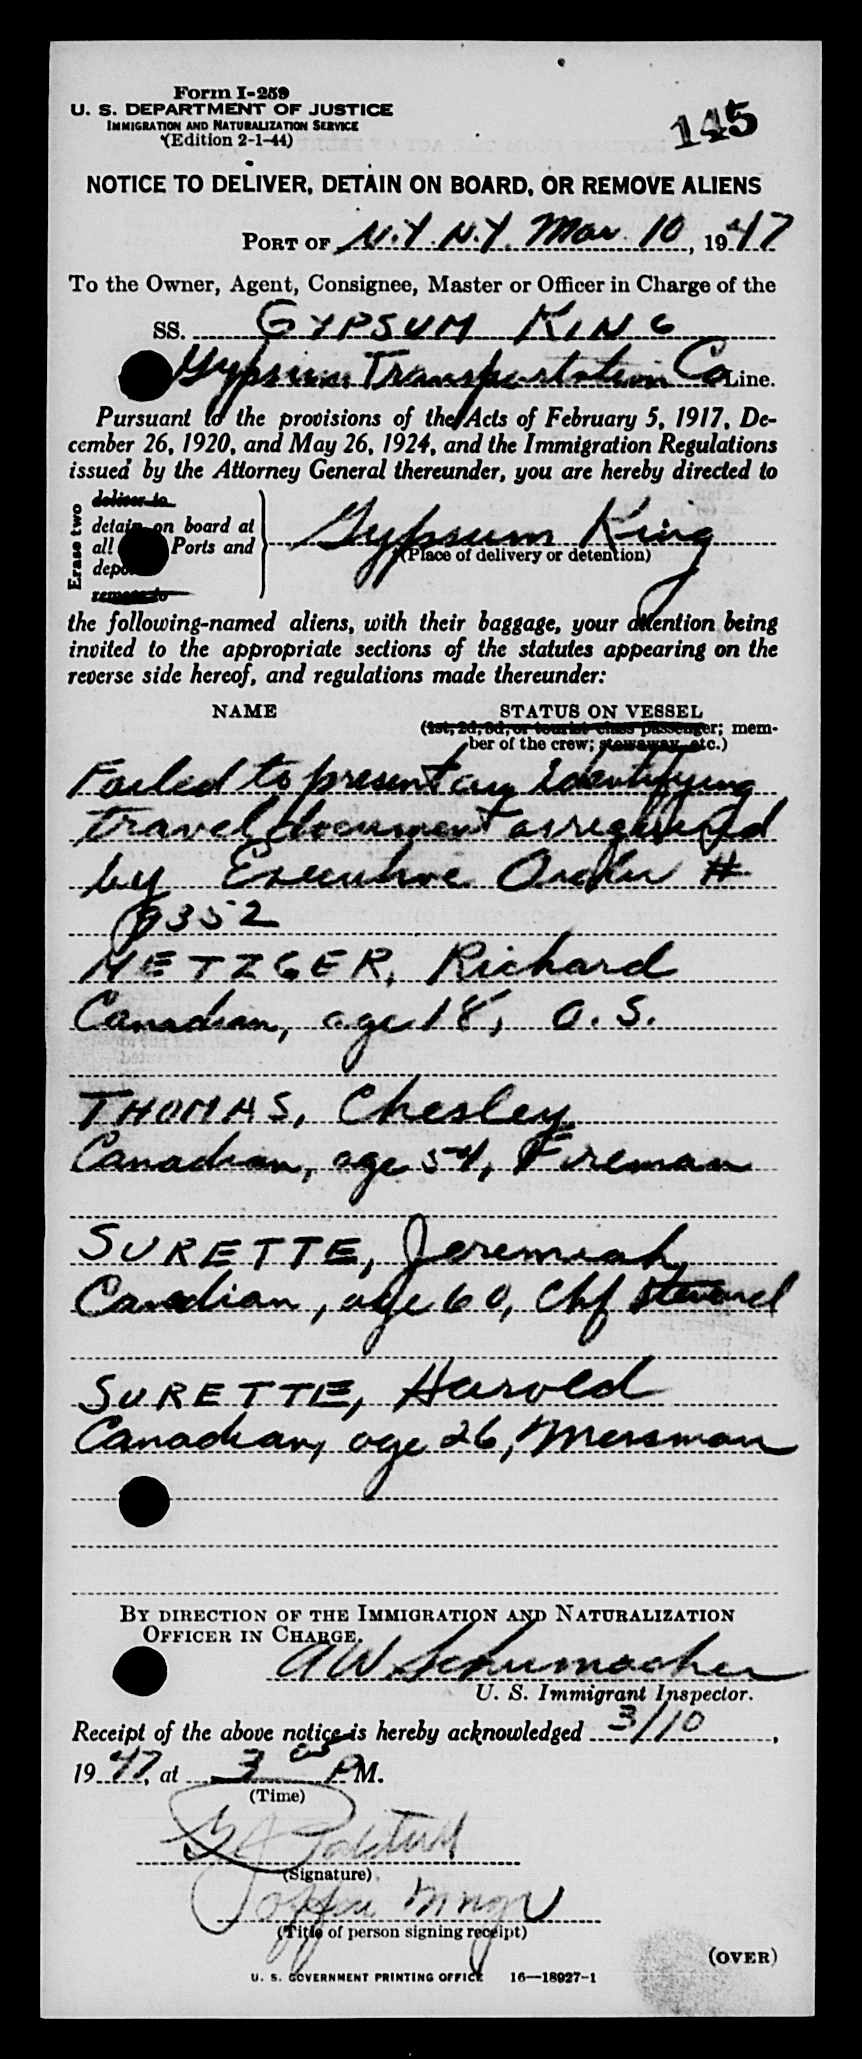 Form I-259
U. S. DEPARTMENT OF JUSTICE
IMMIGRATION AND NATURALIZATION SERVICE
(Edition 2-1-44)
145
NOTICE TO DELIVER, DETAIN ON BOARD, OR REMOVE ALIENS
PORT OF N.Y. N.Y. Mar 10, 1947
To the Owner, Agent, Consignee, Master or Officer in Charge of the
SS. GYPSUM KING
Gypsum Transportation Co Line.
Pursuant to the provisions of the Acts of February 5, 1917, De-
cember 26, 1920, and May 26, 1924, and the Immigration Regulations
issued by the Attorney General thereunder, you are hereby directed to
Erase two
deliver to
detain on board at
all Ports and
remove to
Gypsum King
(Place of delivery or detention)
the following-named aliens, with their baggage, your attention being
invited to the appropriate sections of the statutes appearing on the
reverse side hereof, and regulations made thereunder:
NAME STATUS ON VESSEL
(1st, 2d, 3d, or tourist class passenger; mem-
ber of the crew; stowaway, etc.)
Failed to present any identifying
travel document as required
by Executive Order #
9352
METZGER, Richard
Canadian, age 18, O.S.
THOMAS, Chesley
Canadian, age 54, Fireman
SURETTE, Jeremiah
Canadian, age 60, Chf Steward
SURETTE, Harold
Canadian, age 26, Messman
BY DIRECTION OF THE IMMIGRATION AND NATURALIZATION
OFFICER IN CHARGE.
A W Schumacher
U. S. Immigrant Inspector.
Receipt of the above notice is hereby acknowledged 3/10,
1947, at 3 00 PM.
(Time)
(Signature)
Mngr
(Title of person signing receipt)
(OVER)
U. S. GOVERNMENT PRINTING OFFICE 16—18927-1